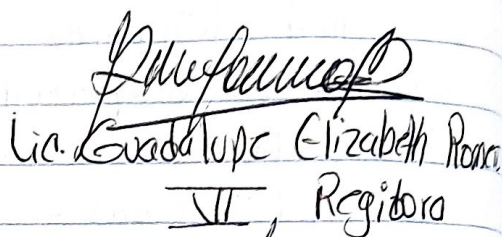 Lic. Guadalupe Elizabeth
VII, Regidora